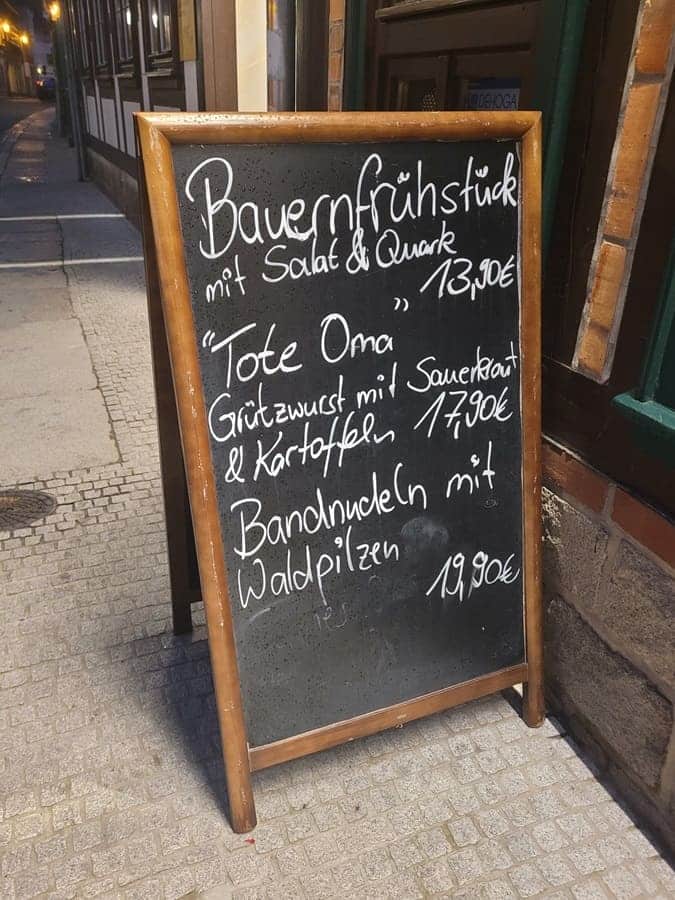 DEHOGA
Bauernfrühstück
mit Salat & Quark
13,90€
"Tote Oma"
Grützwurst mit Sauerkraut
& Kartoffeln 17,90€
Bandnudeln mit
Waldpilzen
19,90€